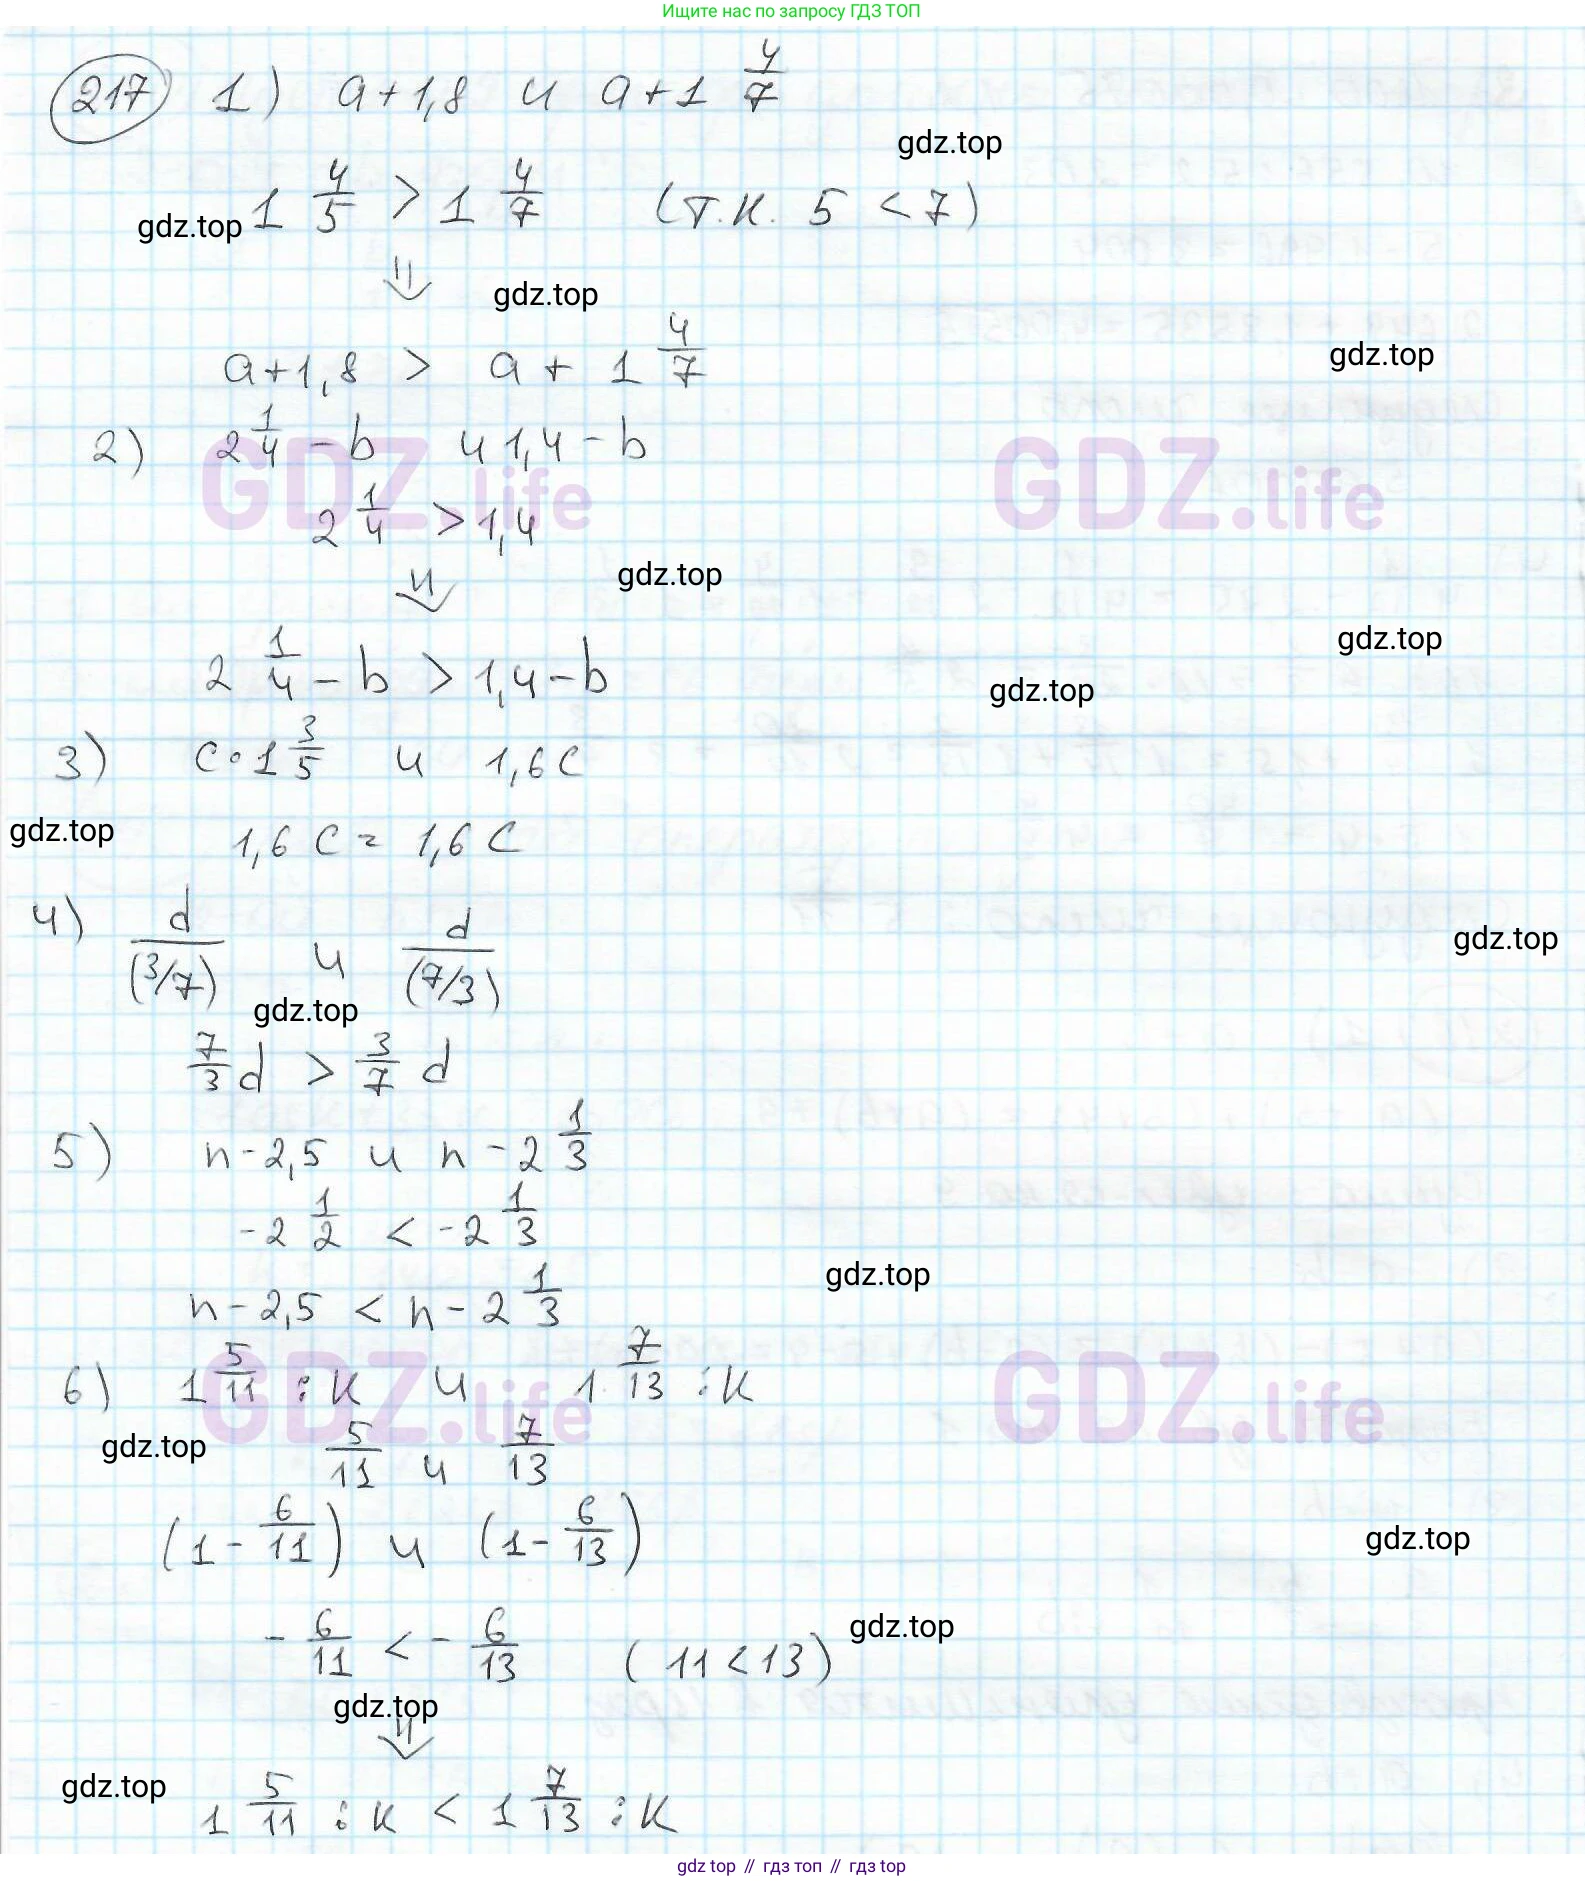 Ищите нас по запросу ГДЗ ТОП
217 1) a+1,8 и a+1 4/7
gdz.top
1 4/5 > 1 4/7 (т.к. 5 < 7)
gdz.top
⇓
gdz.top
a+1,8 > a + 1 4/7
gdz.top
2) 2 1/4 - b и 1,4 - b
GDZ.life GDZ.life
2 1/4 > 1,4
⇓
gdz.top
gdz.top
2 1/4 - b > 1,4 - b
gdz.top
3) c · 1 3/5 и 1,6 c
gdz.top
1,6 c = 1,6 c
4) d/(3/7) и d/(7/3)
gdz.top
gdz.top
7/3 d > 3/7 d
5) n - 2,5 и n - 2 1/3
-2 1/2 < -2 1/3
gdz.top
n - 2,5 < n - 2 1/3
6) 1 5/11 : k и 1 7/13 : k
GDZ.life GDZ.life
gdz.top
5/11 и 7/13
(1 - 6/11) и (1 - 6/13)
gdz.top
- 6/11 < - 6/13 (11 < 13)
gdz.top
gdz.top
⇓
gdz.top
1 5/11 : k < 1 7/13 : k
gdz top // гдз топ // гдз top